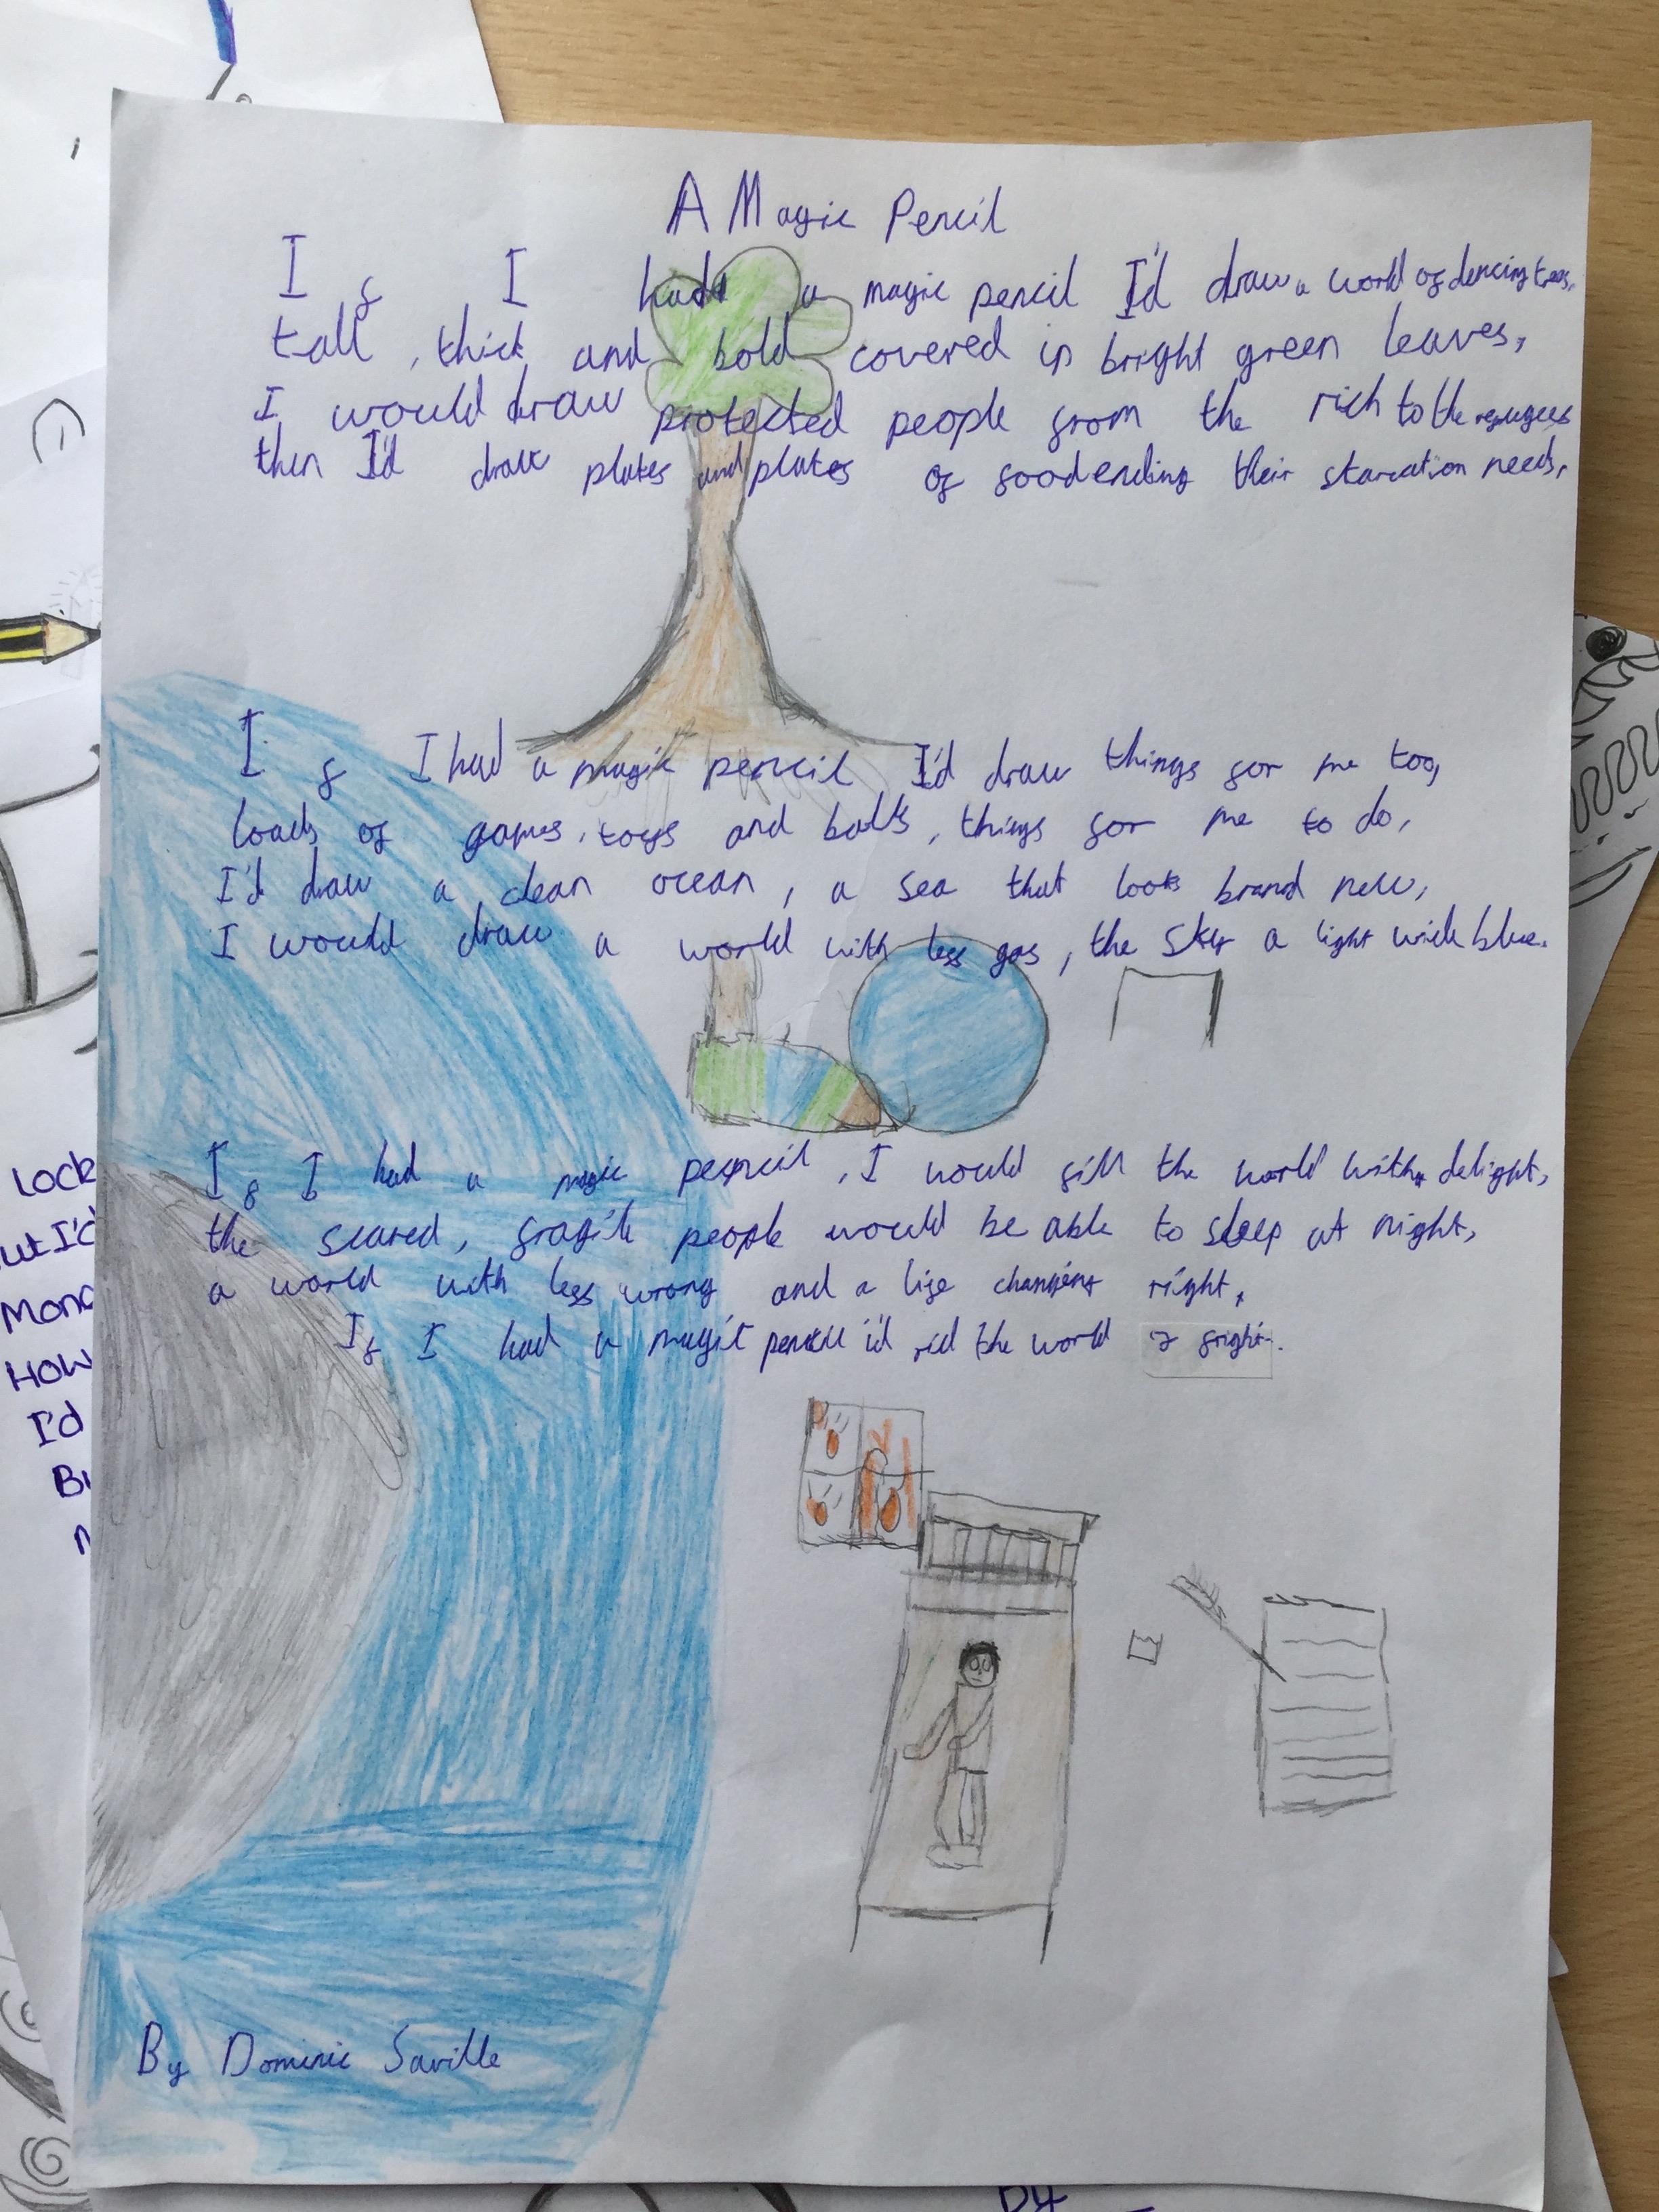 A Magic Pencil
If I had a magic pencil I'd draw a world of dancing trees,
tall, thick and bold covered in bright green leaves,
I would draw protected people from the rich to the refugees
then I'd draw plates and plates of food ending their starvation needs,
If I had a magic pencil I'd draw things for me too,
loads of games, toys and balls, things for me to do,
I'd draw a clean ocean, a sea that looks brand new,
I would draw a world with less gas, the sky a light wide blue.
If I had a magic pencil, I would fill the world with delight,
the scared, fragile people would be able to sleep at night,
a world with less wrong and a life changing right,
If I had a magic pencil i'd rid the world of fright.
By Dominic Saville
Lock
ut I'd
Mono
How
I'd